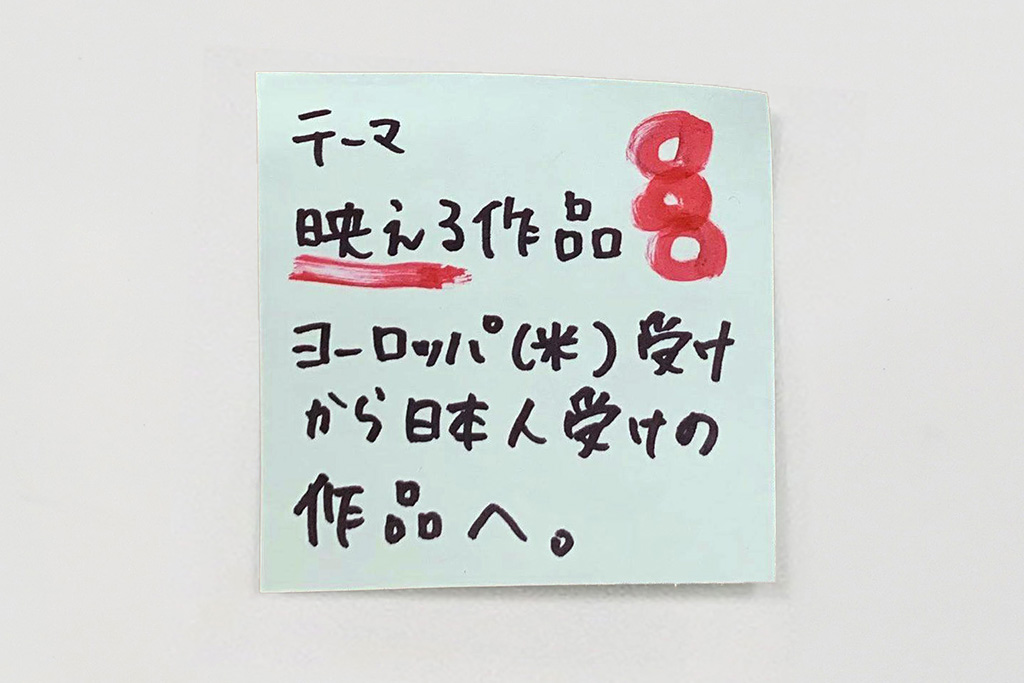 テーマ
映える作品
ヨーロッパ(米)受け
から日本人受けの
作品へ。